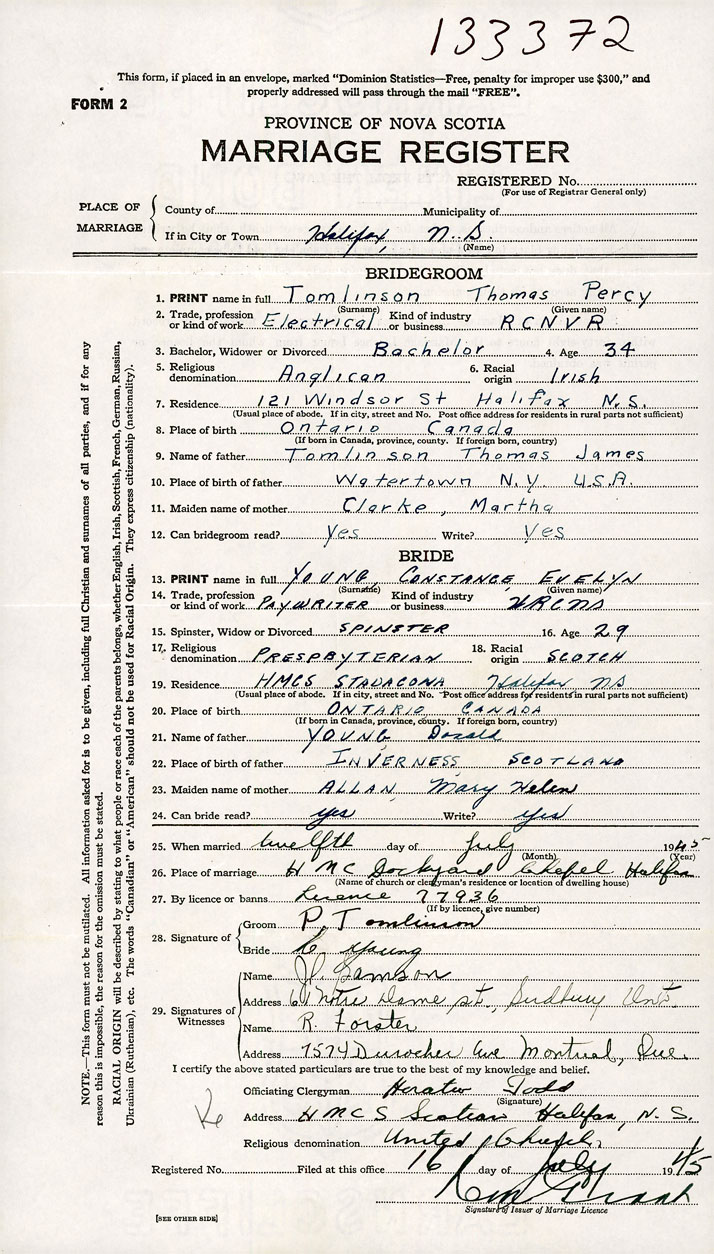 133372
This form, if placed in an envelope, marked "Dominion Statistics—Free, penalty for improper use $300," and
properly addressed will pass through the mail "FREE".
FORM 2
PROVINCE OF NOVA SCOTIA
MARRIAGE REGISTER
REGISTERED No.
(For use of Registrar General only)
PLACE OF MARRIAGE
County of Municipality of
If in City or Town Halifax, N.S.
(Name)
BRIDEGROOM
1. PRINT name in full Tomlinson Thomas Percy
(Surname) (Given name)
2. Trade, profession or kind of work Electrical Kind of industry or business RCNVR
3. Bachelor, Widower or Divorced Bachelor 4. Age 34
5. Religious denomination Anglican 6. Racial origin Irish
7. Residence 121 Windsor St Halifax N.S.
(Usual place of abode. If in city, street and No. Post office address for residents in rural parts not sufficient)
8. Place of birth Ontario Canada
(If born in Canada, province, county. If foreign born, country)
9. Name of father Tomlinson Thomas James
10. Place of birth of father Watertown N.Y U.S.A.
11. Maiden name of mother Clarke, Martha
12. Can bridegroom read? Yes Write? Yes
BRIDE
13. PRINT name in full YOUNG, CONSTANCE EVELYN
(Surname) (Given name)
14. Trade, profession or kind of work PAYWRITER Kind of industry or business WRCNS
15. Spinster, Widow or Divorced SPINSTER 16. Age 29
17. Religious denomination PRESPBYTERIAN 18. Racial origin SCOTCH
19. Residence HMCS STADACONA Halifax NS
(Usual place of abode. If in city, street and No. Post office address for residents in rural parts not sufficient)
20. Place of birth ONTARIO CANADA
(If born in Canada, province, county. If foreign born, country)
21. Name of father YOUNG Donald
22. Place of birth of father INVERNESS SCOTLAND
23. Maiden name of mother ALLAN, Mary Helen
24. Can bride read? yes Write? yes
25. When married twelfth day of July 1945
(Month) (Year)
26. Place of marriage H M C Dockyard Chapel Halifax
(Name of church or clergyman's residence or location of dwelling house)
27. By licence or banns Licence 77936
(If by licence, give number)
28. Signature of
Groom P. Tomlinson
Bride C. Young
29. Signatures of Witnesses
Name J. Samson
Address 61 Notre Dame st., Sudbury Ont.
Name R. Forster
Address 7574 Durocher Ave Montreal, Que.
I certify the above stated particulars are true to the best of my knowledge and belief.
Officiating Clergyman Horatio Todd
(Signature)
Address H M C S Scotian Halifax, N.S.
Religious denomination United
Registered No. Filed at this office 16 day of July 1945
Signature of Issuer of Marriage Licence
[SEE OTHER SIDE]
NOTE.—This form must not be mutilated. All information asked for is to be given, including full Christian and surnames of all parties, and if for any
reason this is impossible, the reason for the omission must be stated.
RACIAL ORIGIN will be described by stating to what people or race each of the parents belongs, whether English, Irish, Scottish, French, German, Russian,
Ukrainian (Ruthenian), etc. The words "Canadian" or "American" should not be used for Racial Origin. They express citizenship (nationality).